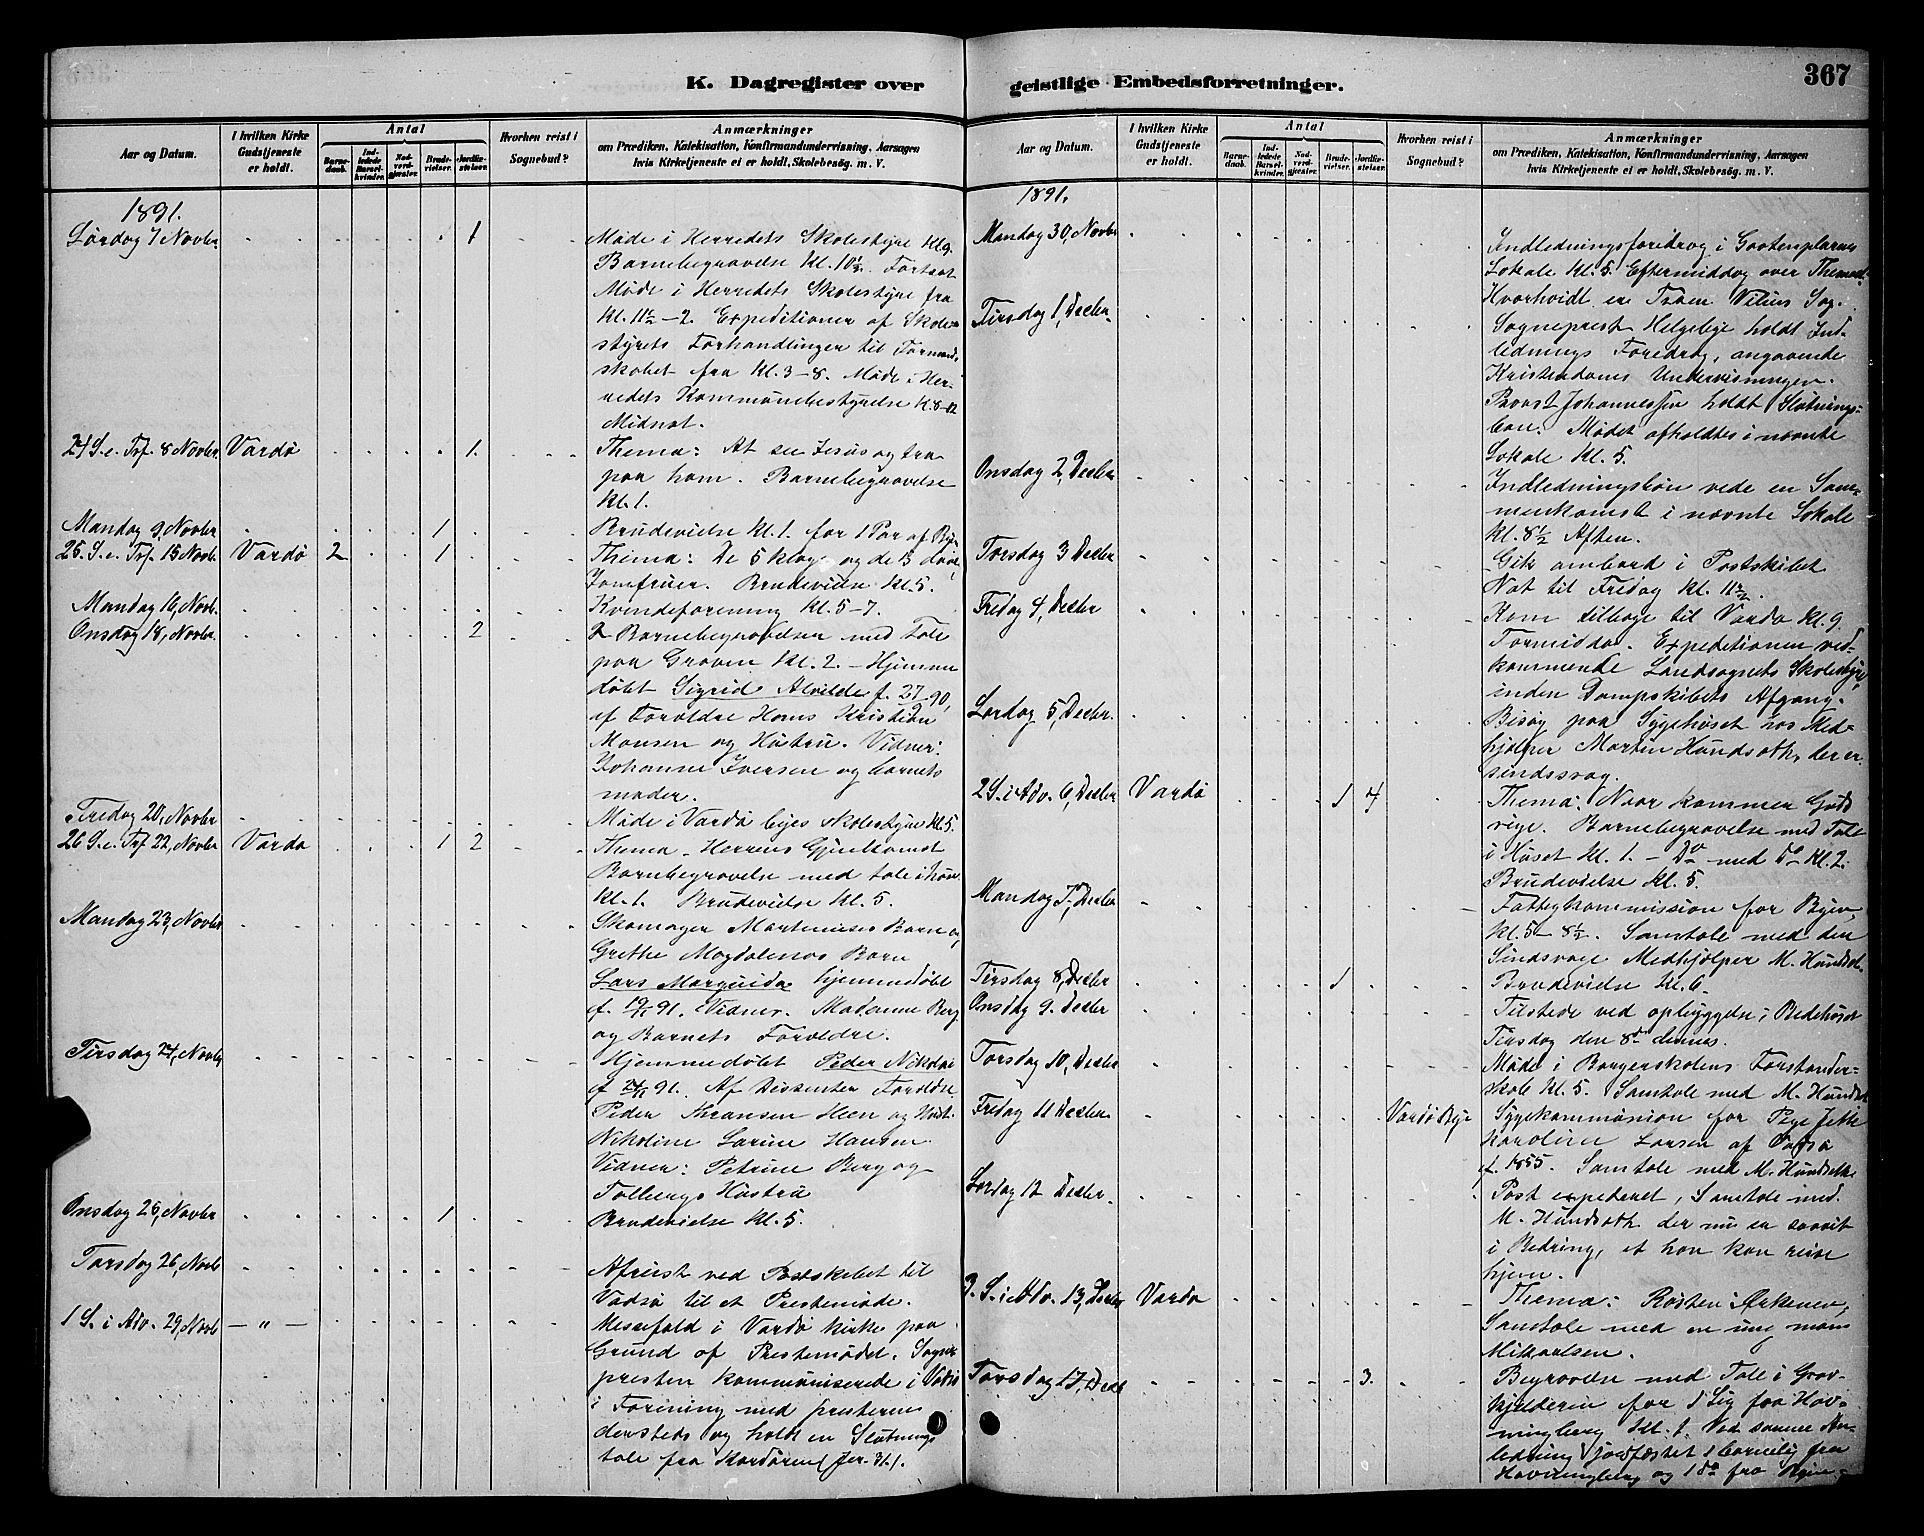 K. Dagregister over
Aar og Datum.
I hvilken Kirke Gudstjeneste er holdt.
Antal
Barnedaab.
Indledede Barselkvinder.
Nadverdgjæster.
Brudevielser.
Jordfæstelser.
Hvorhen reist i Sognebud?
Anmærkninger
om Prædiken, Katekisation, Konfirmandundervisning, Aarsagen
hvis Kirketjeneste ei er holdt, Skolebesøg. m. V.
1891.
Lørdag 7 Novbr 1
Møde i Herredets Skolestyre Kl 9.
Barnebegravelse Kl. 10½. Fortsat
Møde i Herredets Skolestyre fra
Kl. 11½-2. Expeditioner af Skole-
styrets Forhandlinger til Formand-
skabet fra Kl. 3-8. Møde i Her-
redets Kommunebestyrelse Kl. 8-12
Midnat.
24 S. e. Trf. 8 Novbr. Vardø 1.
Thema: At see Jesus og tro
paa ham. Barnebegravelse
Kl. 1.
Mandag 9, Novbr 1
Brudevielse Kl. 1. for 1 Par af Byen
25. S. e. Trf. 15 Novbr. Vardø 2 1
Thema: De 5 kloge og de 5 daarl.
Jomfruer. Brudevielse Kl. 5.
Mandag 16, Novbr.
Kvindeforening Kl. 5-7.
Onsdag 18, Novbr. 2
2 Barnebegravelser med Tale
paa Graven Kl. 2. - Hjemme
døbt Sigrid Alvilde f. 27/9 90,
af Forældre Hans Kristian
Monsen og Hustru. Vidner:
Johanne Iversen og barnets
moder.
Fredag 20, Novbr
Møde i Vardø byes skolestyre Kl. 5.
26 S. e. Trf 22, Novbr Vardø 1 2
Thema - Herrens Gjenkomst
Barnebegravelse med tale i huset
Kl. 1. Brudevielse Kl. 5.
Mandag 23, Novbr
Skomager Martiniuses Barn og
Grethe Magdalenas Barn
Lars hjemmedøbt
f. 91. Vidner. Madamme Berg
og Barnets Forældre.
Tirsdag 24, Novbr
Hjemmedøbt Peder Nikolai
f 91. Af Dissenter Forældre
Peder Hansen og Hust.
Nikoline Larine Hansen.
Vidner: Petrine Berg og
Tolbergs Hustru
Onsdag 25, Novbr 1
Brudevielse Kl. 5.
Torsdag 26, Novbr
Afreist ved Postskibet til
Vadsø til et Prestemøde.
1 S. i Adv. 29, Novb — " —
Messefald i Vardø kirke paa
Grund af Prestemødet. Sogne
presten kommuniserede i Vadsø
i Forening med presterne
densteds og holdt en Slutnings
tale fra Kordøren (Jer. 31).
geistlige Embedsforretninger.
367
Aar og Datum.
I hvilken Kirke Gudstjeneste er holdt.
Antal
Barnedaab.
Indledede Barselkvinder.
Nadverdgjæster.
Brudevielser.
Jordfæstelser.
Hvorhen reist i Sognebud?
Anmærkninger
om Prædiken, Katekisation, Konfirmandundervisning, Aarsagen
hvis Kirketjeneste ei er holdt, Skolebesøg. m. V.
1891.
Mandag 30, Novbr
Indledningsforedrag i Gootemplarnes
Lokale Kl. 5. Eftermiddag over Themaet
Hvorhvidt er Troen Viliens Sag.
Tirsdag 1, Decbr.
Sogneprest Helgeby holdt Ind-
lednings Foredrag, angaaende
Kristendoms Undervisningen.
Provst Johannessen holdt Slutnings-
bøn. Mødet afholdtes i nævnte
Lokale Kl. 5.
Onsdag 2, Decbr
Indledningsbøn vede en Sam-
menkomst i nævnte Lokale
Kl. 8½ Aften.
Torsdag 3 Decbr
Gik ombord i Postskibet
Nat til Fredag Kl. 11½.
Fredag 4, Decbr
Kom tilbage til Vardø Kl. 9
Formiddag. Expeditionen ved-
kommende Landsognets Skolestyre
inden Dampskibets Afgang.
Lørdag 5, Decbr.
Besøg paa Sygehuset hos Med-
hjælper Martin Hundsoth, der er
sindssvag.
2 S. i Adv. 6, Decbr Vardø 1 4
Thema. Naar kommer Guds
rige. Barnebegravelse med Tale
i Huset Kl. 1. - Do med Do Kl. 2.
Brudevielse Kl. 5.
Mandag 7, Decbr
Fattigkommission for Byen
Kl. 5-8½. Samtale med den
Sindsvage Medhjælper M. Hundsoth.
Tirsdag 8, Decbr 1
Brudevielse Kl. 6-
Onsdag 9. Decbr
Tilstede ved opbyggelse i Bedehuset
Tirsdag den 8de dennes.
Torsdag 10, Decbr
Møde i Borgerskolens Forstander-
skab Kl. 5. Samtale med M. Hundsoth
Fredag 11 Decbr. Vardø Bye
Sygekommunion for Pige Jette
Karoline Larsen af Vadsø
f. 1855. Samtale med M. Hundsoth
Lørdag 12 Decbr.
Post expederet, Samtale med
M. Hundsoth der nu er saavit
i Bedring, at han kan reise
hjem.
3. S. i Adv. 13, Decbr Vardø
Thema: Røsten i Ørkenen,
Samtale med en ung mand
Mikaelsen.
Torsdag 17, Decbr 3.
Begravelse med Tale i Grav-
kjelderen for 1 Lig fra Hav-
ningberg Kl. 1. Ved samme An-
ledning jordfæstet 1 barnelig fra
Havningberg og 1 do fra Byen.